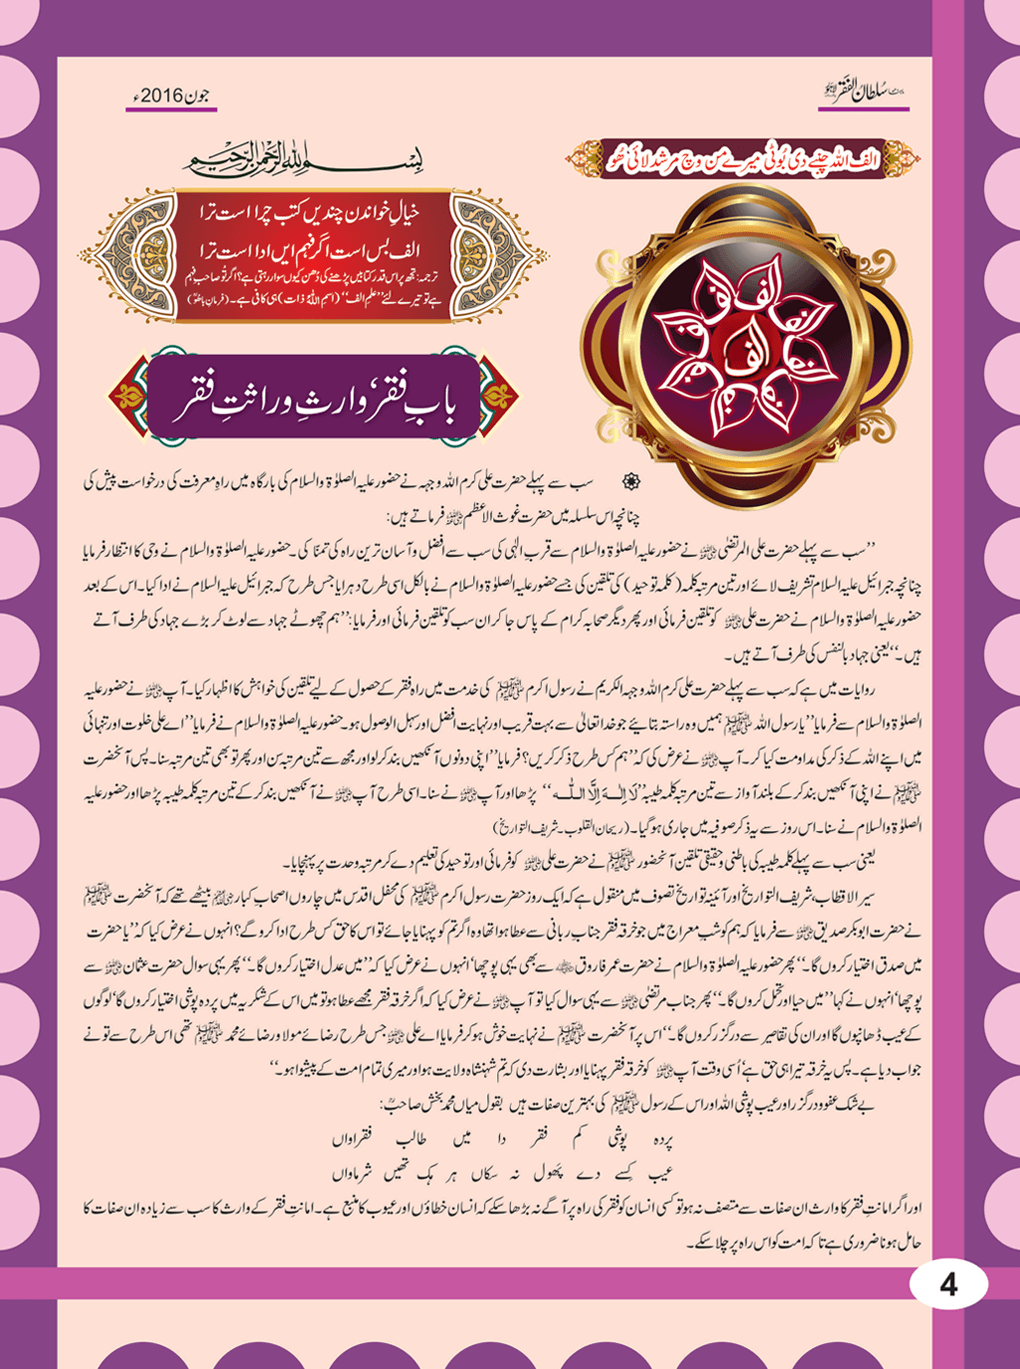 ماہنامہ سُلطان الفقر لاہور
جون 2016ء
الف اللہ چنبے دی بُوٹی میرے من وچ مرشد لائی ھُو
بسم اللہ الرحمن الرحیم
خیالِ خواندن چندیں کتب چرا است ترا
الف بس است اگر فہم ایں ادا است ترا
ترجمہ: تجھ پر اس قدر کتابیں پڑھنے کی دُھن کیوں سوار رہتی ہے؟ اگر تُو صاحبِ فہم
ہے تو تیرے لئے ’’علمِ الف‘‘ (اسمِ اللہ ذات) ہی کافی ہے۔ (فرمان باھُوؒ)
الف
بابِ فقر، وارثِ وراثتِ فقر
سب سے پہلے حضرت علی کرم اللہ وجہہ نے حضور علیہ الصلوٰۃ والسلام کی بارگاہ میں راہِ معرفت کی درخواست پیش کی
چنانچہ اس سلسلہ میں حضرت غوث الاعظم رضی اللہ عنہ فرماتے ہیں:
’’سب سے پہلے حضرت علی المرتضیٰ رضی اللہ عنہ نے حضور علیہ الصلوٰۃ والسلام سے قربِ الٰہی کی سب سے افضل و آسان ترین راہ کی تمنّا کی۔ حضور علیہ الصلوٰۃ والسلام نے وحی کا انتظار فرمایا
چنانچہ جبرائیل علیہ السلام تشریف لائے اور تین مرتبہ کلمہ (کلمہ توحید) کی تلقین کی جسے حضور علیہ الصلوٰۃ والسلام نے بالکل اسی طرح دہرایا جس طرح کہ جبرائیل علیہ السلام نے ادا کیا۔ اس کے بعد
حضور علیہ الصلوٰۃ والسلام نے حضرت علی رضی اللہ عنہ کو تلقین فرمائی اور پھر دیگر صحابہ کرام کے پاس جا کر ان سب کو تلقین فرمائی اور فرمایا: ’’ہم چھوٹے جہاد سے لوٹ کر بڑے جہاد کی طرف آتے
ہیں۔‘‘ یعنی جہاد بالنفس کی طرف آتے ہیں۔
روایات میں ہے کہ سب سے پہلے حضرت علی کرم اللہ وجہہ الکریم نے رسول اکرم ﷺ کی خدمت میں راہِ فقر کے حصول کے لیے تلقین کی خواہش کا اظہار کیا۔ آپ رضی اللہ عنہ نے حضور علیہ
الصلوٰۃ والسلام سے فرمایا ’’یا رسول اللہ ﷺ ہمیں وہ راستہ بتائیے جو خدا تعالیٰ سے بہت قریب اور نہایت افضل اور سہل الوصول ہو۔ حضور علیہ الصلوٰۃ والسلام نے فرمایا ’’اے علی خلوت اور تنہائی
میں اپنے اللہ کے ذکر کی مداومت کیا کر۔ آپ رضی اللہ عنہ نے عرض کی کہ ’’ہم کس طرح ذکر کریں؟ فرمایا ’’اپنی دونوں آنکھیں بند کر لو اور مجھ سے تین مرتبہ سن اور پھر تو بھی تین مرتبہ سنا۔ پس آنحضرت
ﷺ نے اپنی آنکھیں بند کر کے بلند آواز سے تین مرتبہ کلمہ طیبہ ’’لَا اِلٰہَ اِلَّا اللّٰہ‘‘ پڑھا اور آپ رضی اللہ عنہ نے سنا۔ اسی طرح آپ رضی اللہ عنہ نے آنکھیں بند کر کے تین مرتبہ کلمہ طیبہ پڑھا اور حضور علیہ
الصلوٰۃ والسلام نے سنا۔ اس روز سے یہ ذکر صوفیہ میں جاری ہو گیا۔ (ریحان القلوب۔ شریف التواریخ)
یعنی سب سے پہلے کلمہ طیبہ کی باطنی و حقیقی تلقین آنحضور ﷺ نے حضرت علی رضی اللہ عنہ کو فرمائی اور توحید کی تعلیم دے کر مرتبہ وحدت پر پہنچایا۔
سیر الاقطاب، شریف التواریخ اور آئینہ تواریخ تصوف میں منقول ہے کہ ایک روز حضرت رسول اکرم ﷺ کی محفلِ اقدس میں چاروں اصحاب کبار رضی اللہ عنہم بیٹھے تھے کہ آنحضرت ﷺ
نے حضرت ابو بکر صدیق رضی اللہ عنہ سے فرمایا کہ ہم کو شبِ معراج میں جو خرقہ فقر جنابِ ربانی سے عطا ہوا تھا وہ اگر تم کو پہنایا جائے تو اس کا حق کس طرح ادا کرو گے؟ انہوں نے عرض کیا کہ ’’یا حضرت
میں صدق اختیار کروں گا۔‘‘ پھر حضور علیہ الصلوٰۃ والسلام نے حضرت عمر فاروق رضی اللہ عنہ سے بھی یہی پوچھا، انہوں نے عرض کیا کہ ’’میں عدل اختیار کروں گا۔‘‘ پھر یہی سوال حضرت عثمان رضی اللہ عنہ سے
پوچھا، انہوں نے کہا ’’میں حیا اور تحمل کروں گا۔‘‘ پھر جناب مرتضیٰ رضی اللہ عنہ سے یہی سوال کیا تو آپ رضی اللہ عنہ نے عرض کیا کہ اگر خرقہ فقر مجھے عطا ہو تو میں اس کے شکریہ میں پردہ پوشی اختیار کروں گا، لوگوں
کے عیب ڈھانپوں گا اور ان کی تقاصیر سے درگزر کروں گا۔‘‘ اس پر آنحضرت ﷺ نے نہایت خوش ہو کر فرمایا اے علی رضی اللہ عنہ جس طرح رضائے مولا و رضائے محمد ﷺ تھی اس طرح سے تو نے
جواب دیا ہے۔ پس یہ خرقہ تیرا ہی حق ہے، اُسی وقت آپ رضی اللہ عنہ کو خرقہ فقر پہنایا اور بشارت دی کہ تم شہنشاہِ ولایت ہو اور میری تمام امت کے پیشوا ہو۔‘‘
بے شک عفو و درگزر اور عیب پوشی اللہ اور اس کے رسول ﷺ کی بہترین صفات ہیں بقول میاں محمد بخش صاحبؒ:
پردہ پوشی کم فقر دا میں طالب فقراواں
عیب کِسے دے پَھول نہ سکاں ہر ہک تھیں شرماواں
اور اگر امانتِ فقر کا وارث ان صفات سے متصف نہ ہو تو کسی انسان کو فقر کی راہ پر آگے نہ بڑھا سکے کہ انسان خطاؤں اور عیوب کا منبع ہے۔ امانتِ فقر کے وارث کا سب سے زیادہ ان صفات کا
حامل ہونا ضروری ہے تاکہ امت کو اس راہ پر چلا سکے۔
4